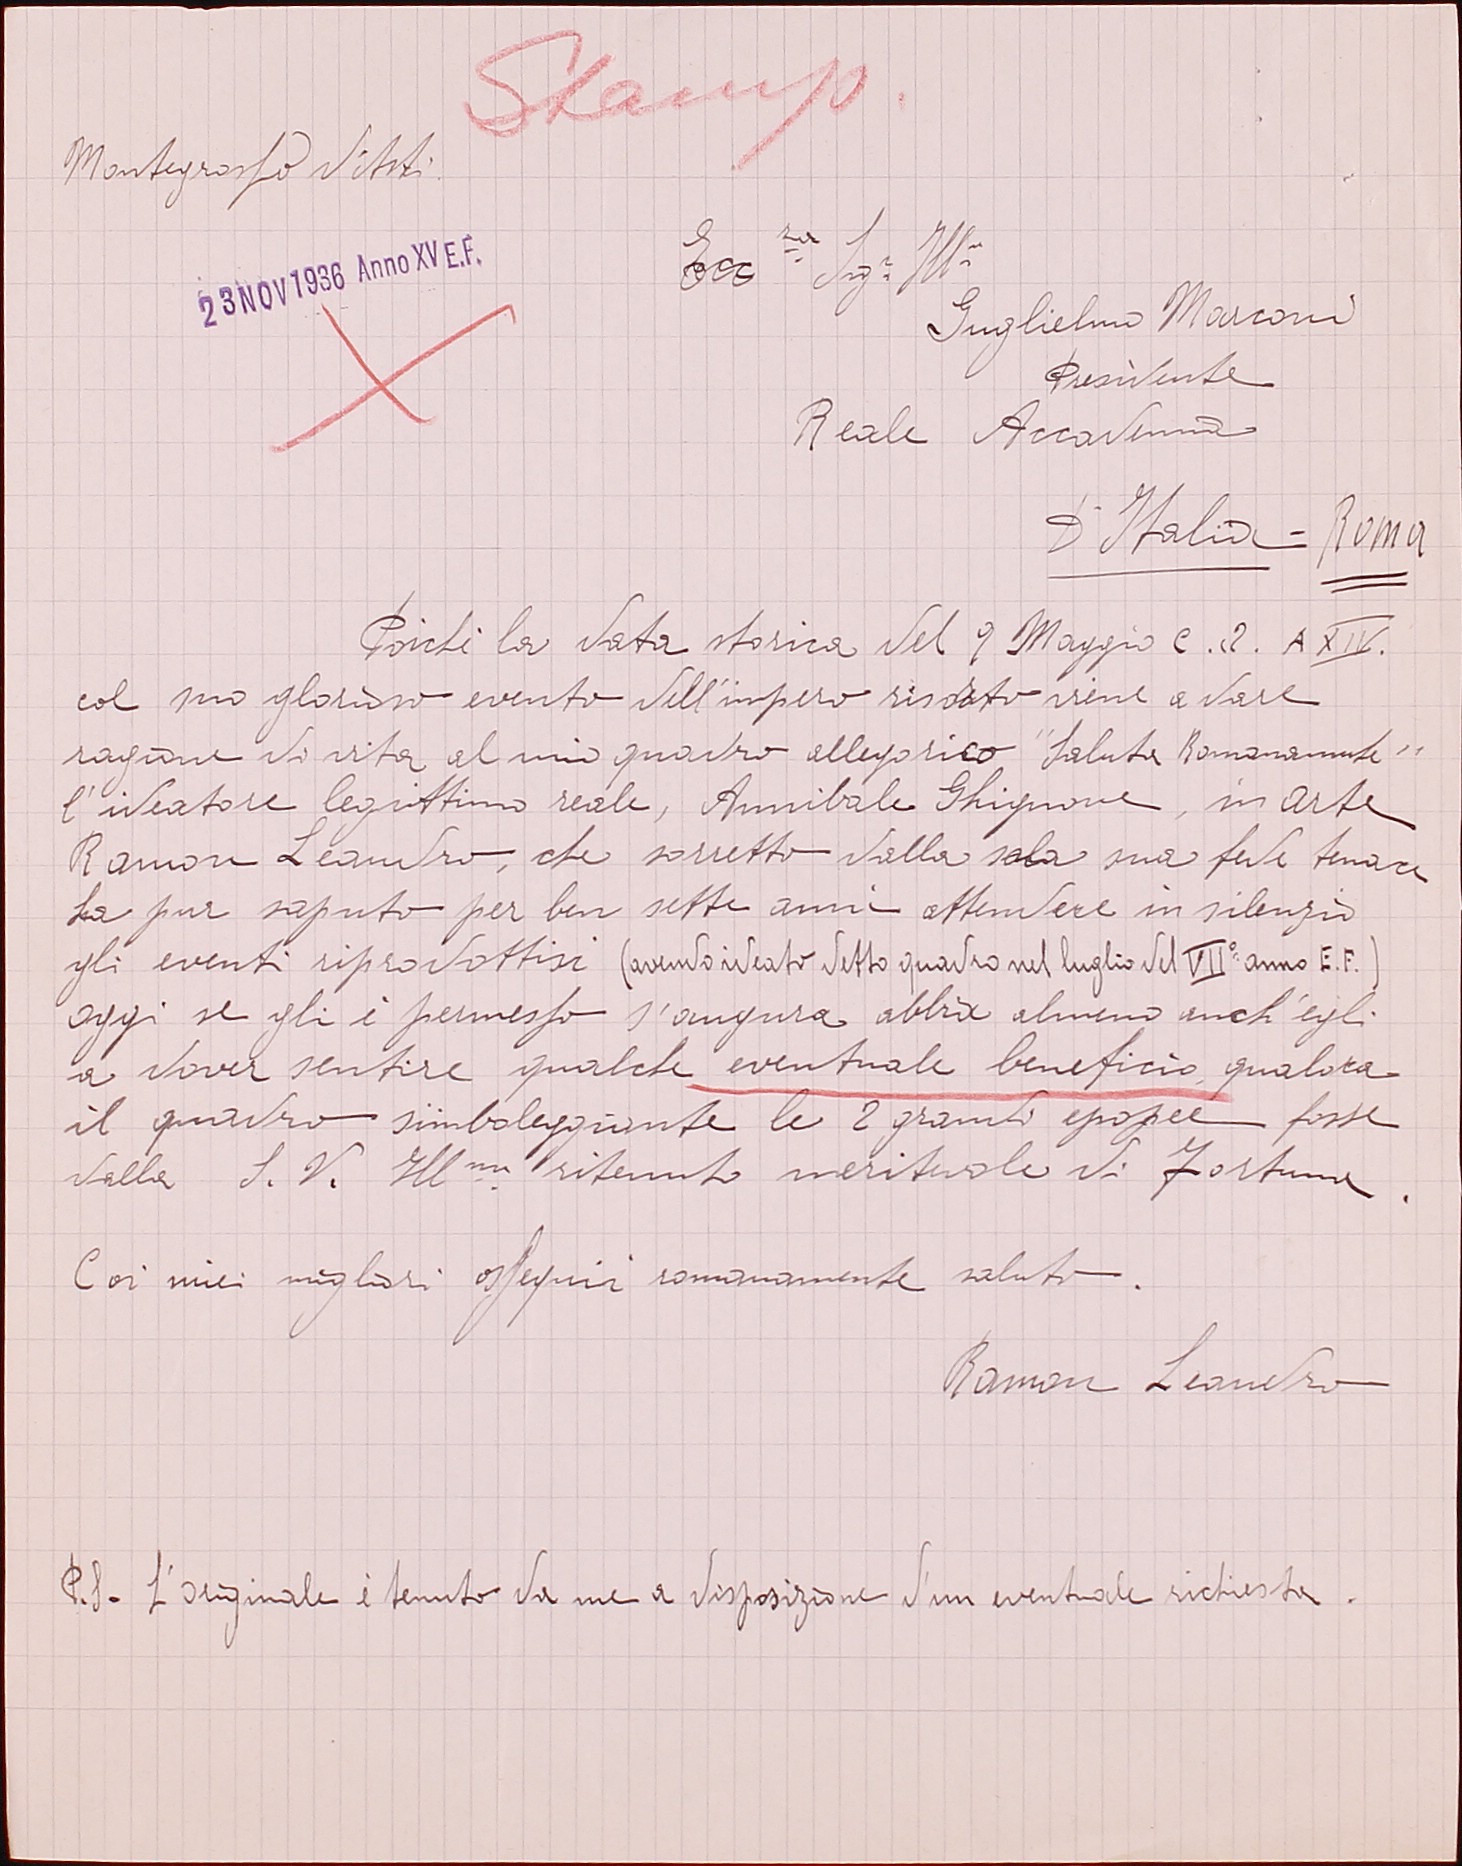 Stamp.
Montegrosso d'Asti.
23 NOV 1936 Anno XV E.F.
Ecc za Sigr Illm
Guglielmo Marconi
Presidente
Reale Accademia
D'Italia = Roma
Poichè la data storica del 9 Maggio c. a. A XIV.
col suo glorioso evento dell'impero risorto viene a dare
ragione di vita al mio quadro allegorico "Saluta Romanamente"
l'ideatore legittimo reale, Annibale Ghignone, in arte
Ramon Leandro, che sorretto dalla sola sua fede tenace
ha pur saputo per ben sette anni attendere in silenzio
gli eventi riprodottisi (avendo ideato detto quadro nel luglio del VII° anno E.F.)
oggi se gli è permesso s'augura abbia almeno anch'egli
a dover sentire qualche eventuale beneficio, qualora
il quadro simboleggiante le 2 grandi epopee fosse
dalla S. V. Illma ritenuto meritevole di Fortuna.
Coi miei migliori ossequii romanamente saluto.
Ramon Leandro
P.S. L'originale è tenuto da me a disposizione d'un eventuale richiesta.